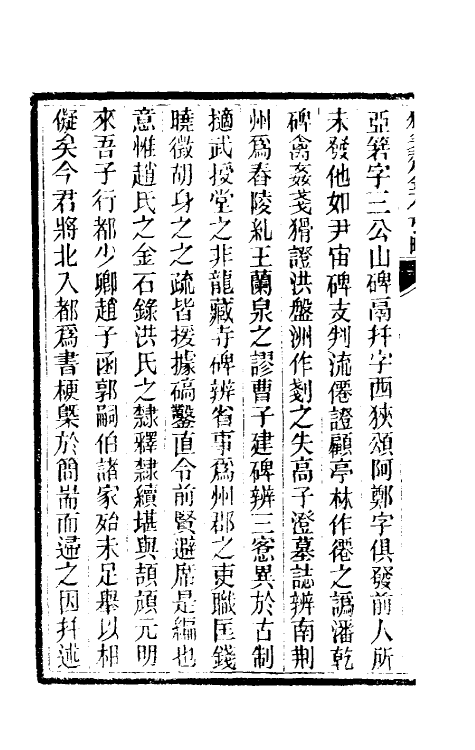 亞箬字三公山碑鬲幷字西狹頌阿鄭字俱發前人所
未發他如尹宙碑支判流僊證顧亭林作僊之譌潘乾
碑禽姦戔猾證洪盤洲作剗之失高子澄墓誌辨南荆
州爲舂陵糺王蘭泉之謬曹子建碑辨三窓異於古制
擿武授堂之非龍藏寺碑辨省事爲州郡之吏職匡錢
曉徵胡身之之疏皆援據碻鑿直令前賢避席是編也
意惟趙氏之金石錄洪氏之隸釋隸續堪與頡頏元明
來吾子行都少卿趙子函郭嗣伯諸家殆未足舉以相
儗矣今君將北入都爲書梗槩於簡耑而遺之因幷述